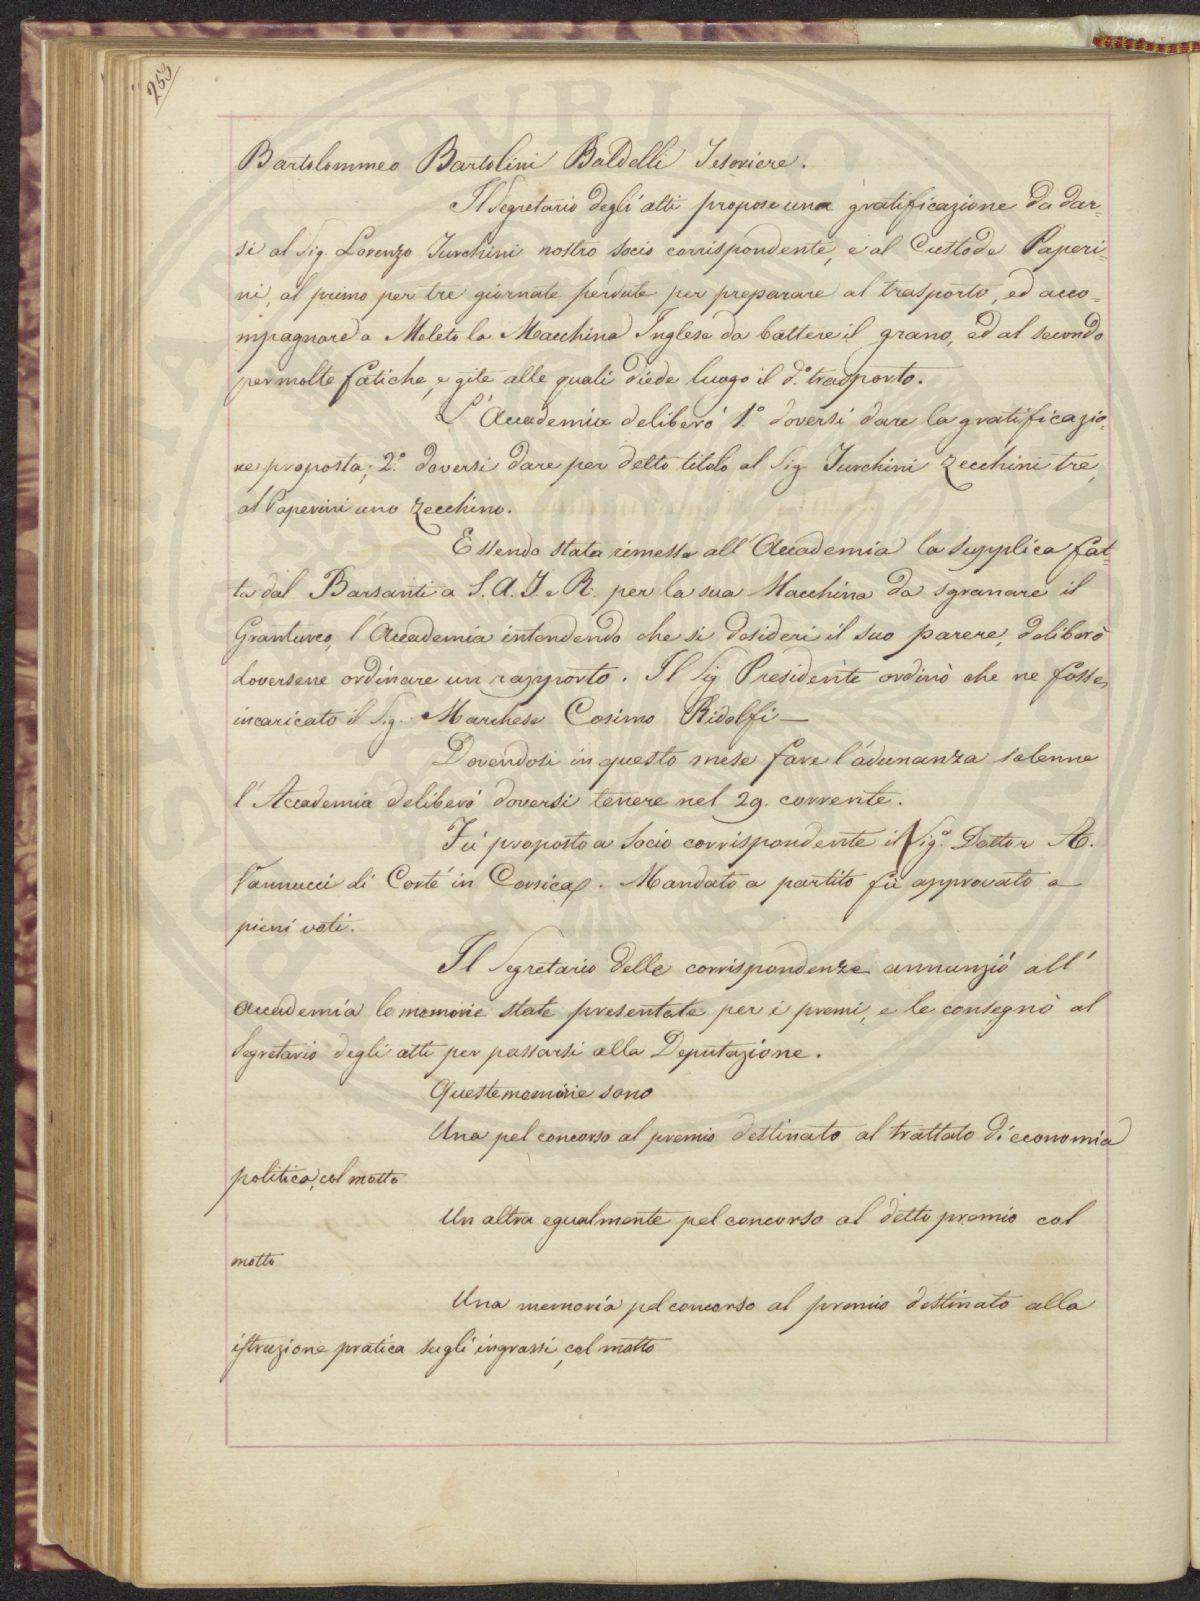 253
Bartolommeo Bartolini Baldelli Tesoriere.
Il Segretario degli atti propose una gratificazione da dar-
si al Sig. Lorenzo Turchini nostro socio corrispondente, e al Custode Paperi-
ni, al primo per tre giornate perdute per preparare al trasporto, ed acco-
mpagnare a Meleto la Macchina Inglese da battere il grano, ed al secondo
per molte fatiche, e gite alle quali diede luogo il d.º trasporto.
L'Accademia deliberó 1.º doversi dare la gratificazio-
ne proposta; 2.º doversi dare per detto titolo al Sig. Turchini zecchini tre,
al Paperini uno zecchino.
Essendo stata rimessa all'Accademia la supplica fat-
ta dal Barsanti a S. A. I. e R. per la sua Macchina da sgranare il
Granturco, l'Accademia intendendo che si desideri il suo parere, deliberò
doversene ordinare un rapporto. Il Sig. Presidente ordinò che ne fosse
incaricato il Sig. Marchese Cosimo Ridolfi —
Dovendosi in questo mese fare l'adunanza solenne
l'Accademia deliberó doversi tenere nel 29. corrente.
Fú proposto a socio corrispondente il Sig.º Dottor A.
Vannucci di Corte in Corsica. Mandato a partito fú approvato a
pieni voti.
Il Segretario delle corrispondenze annunzió all'
Accademia le memorie state presentate per i premi, e le consegnò al
Segretario degli atti per passarsi alla Deputazione.
Queste memorie sono
Una pel concorso al premio destinato al trattato di economia
politica, col motto
Un altra egualmente pel concorso al detto premio col
motto
Una memoria pel concorso al premio destinato alla
istruzione pratica sugli ingrassi, col motto